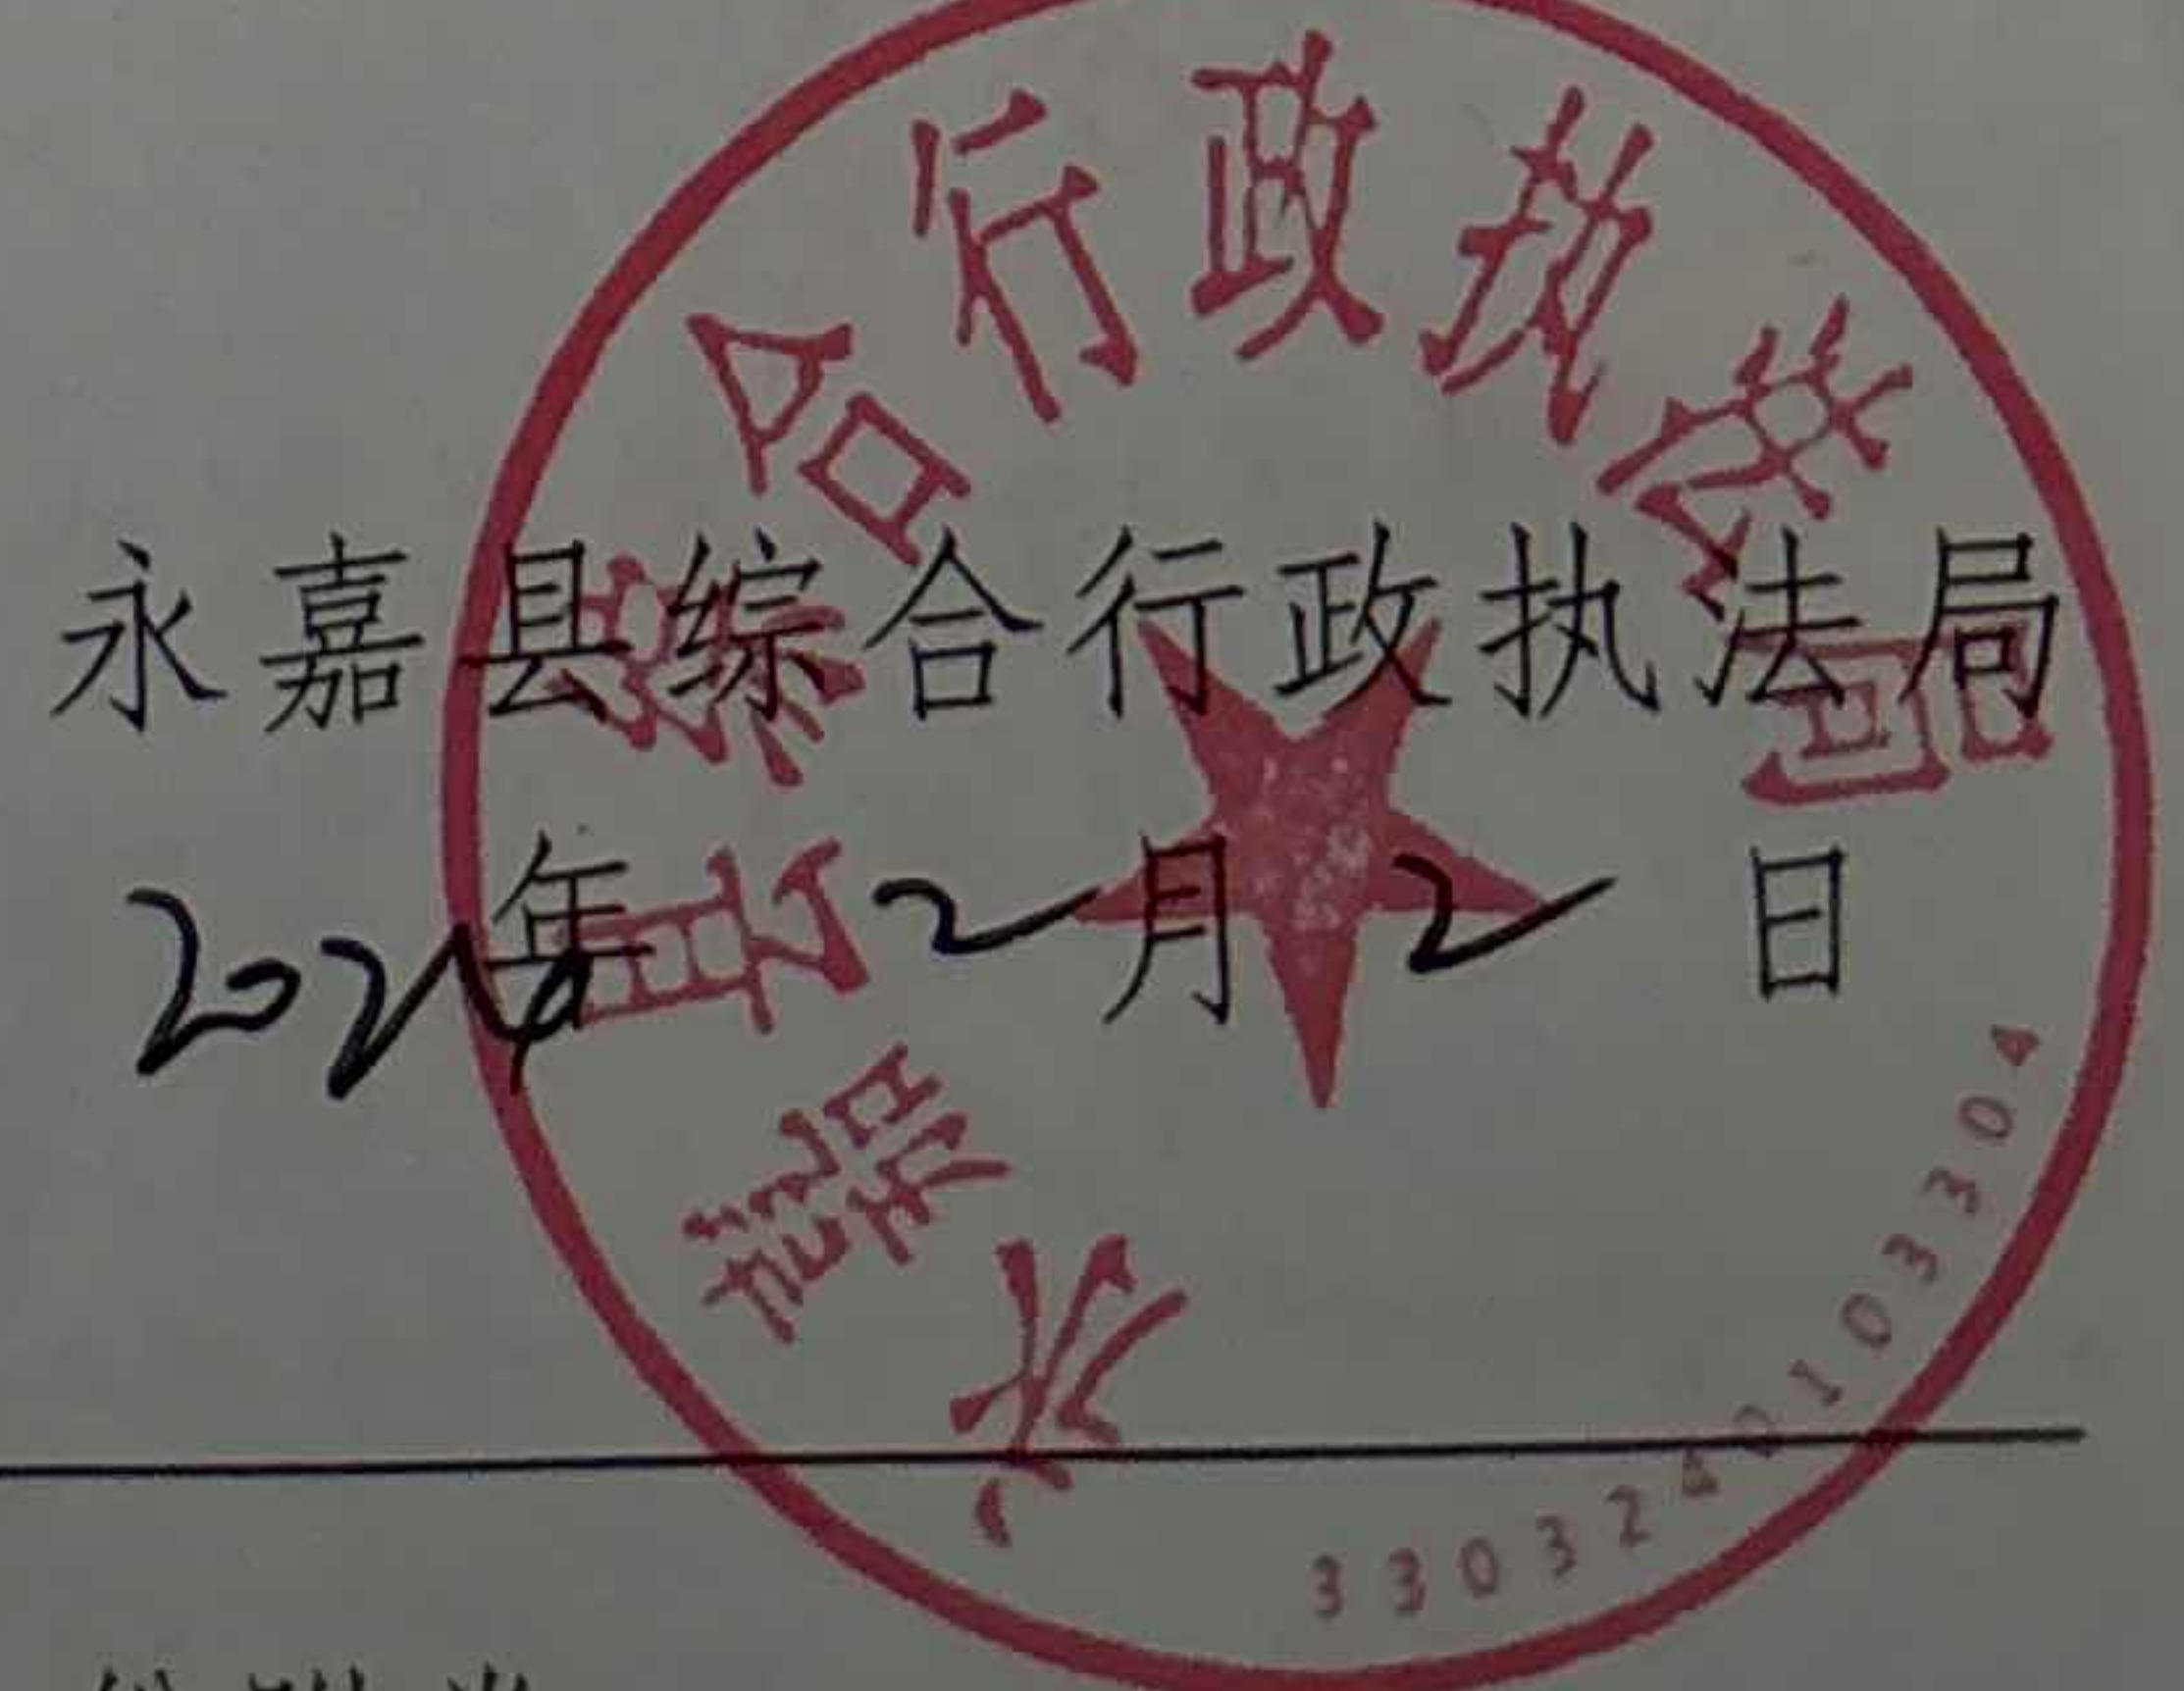 永嘉县综合行政执法局
2024年2月2日
永嘉县综合行政执法局
3303240103304